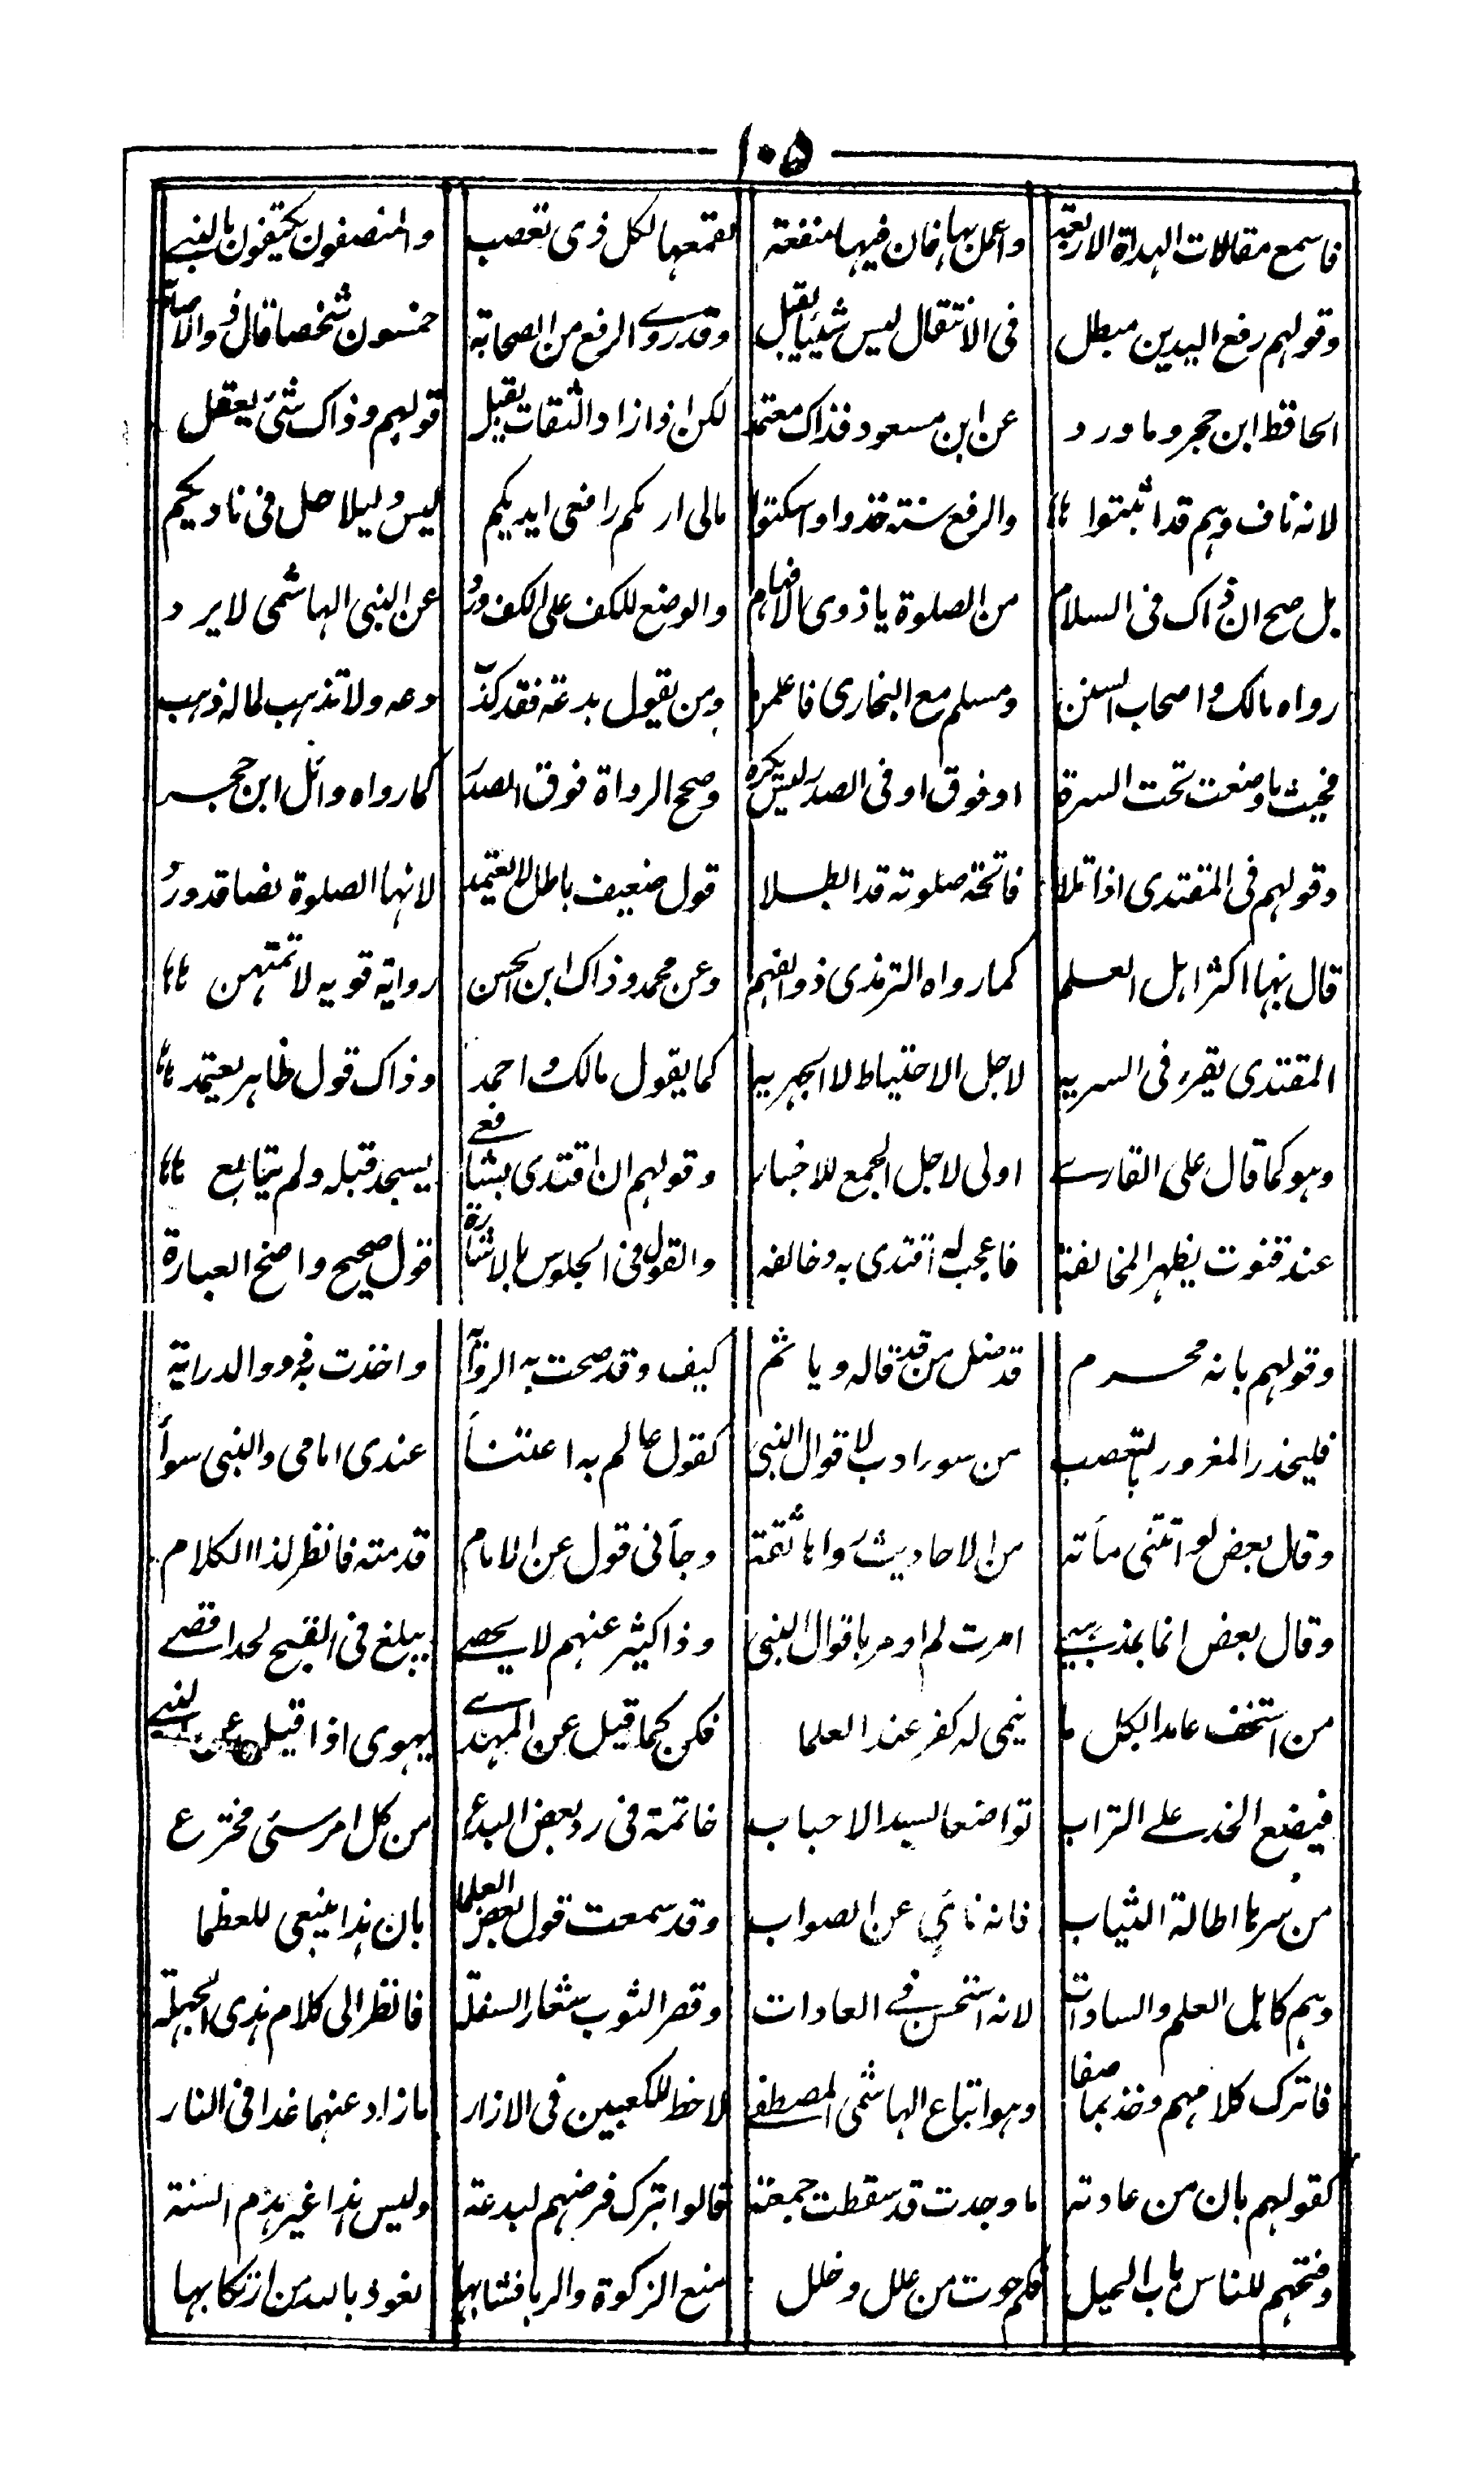 ١٠٥
فاسمع مقالات الهداة الاربعة واعمل بها فان فيها منفعة لقمعها لكل ذى تعصب والمنصفون يكتفون بالنبي
وقولهم رفع اليدين مبطل فى الانتقال ليس شيئا يقبل وقدروے الرفع من الصحابة خمسون شخصا قال ذو الاصابة
الحافظ ابن حجر وما ورد عن ابن مسعود فذاك معتمد لكن اذا زاد الثقات يقبل قولهم وذاك شئ يعقل
لانه ناف وهم قد اثبتوا والرفع سنة خذوا واسكتوا مالى اراكم رافعى ايديكم ليس دليلا حل فى ناديكم
بل صح ان ذاك فى السلام من الصلوة يا ذوى الافهام والوضع للكف على الكف ورد عن النبى الهاشمى لا يرد
رواه مالك و اصحاب السنن ومسلم مع البخارى فاعلمن ومن يقول بدعة فقد كذب دعه ولا تذهب لما له ذهب
فحيث ما وضعت تحت السرة او فوق او فى الصدر ليس يكره وصحح الرواة فوق الصدر كما رواه وائل ابن حجر
وقولهم فى المقتدى اذا تلا فاتحة صلوته قد ابطلا قول ضعيف باطل لا يعتمد لانها الصلوة نصا قد ورد
قال بها اكثر اهل العلم كما رواه الترمذى ذو الفهم وعن محمد وذاك ابن الحسن رواية قوية لا تمتهن
المقتدى يقرء فى السرية لاجل الاحتياط لا الجهرية كما يقول مالك و احمد وذاك قول ظاهر يعتمد
وهو كما قال على القارے اولى لاجل الجمع للاخبار وقولهم ان اقتدى بشافعے يسجد قبله ولم يتابع
عند قنوت يظهر المخالفة فاعجب له اقتدى به وخالفه والقول فى الجلوس بالاشارة قول صحيح واضح العبارة
وقولهم بانه محرم قد ضل من قد قاله وياثم كيف وقد صحت به الرواية واخذت به ذوو الدراية
فليحذر المغرور بالتعصب من سوء ادب لاقوال النبى كقول عالم به اعتناء عندى امامى والنبى سواء
وقال بعض لو اتتنى مائة من الاحاديث رواها ثقة وجاءنى قول عن الامام قدمته فانظر لذا الكلام
وقال بعض انما بمذهبے امرت لم اومر باقوال النبى وذا كثير عنهم لا يحصے يبلغ فى القبح لحد اقصے
من استخف عامدا بكل ما ينمى له كفر عند العلما فكن كما قيل عن المهدے يهوى اذا قيل عن النبے
فيضع الخد علے التراب تواضعا لسيد الاحباب خاتمة فى رد بعض البدع من كل امر سئ مخترع
من سرها اطالة الثياب فانه نائي عن الصواب وقد سمعت قول بعض العلما بان هذا ينبغى للعظما
وهم كاهل العلم والسادات لانه استحسن فے العادات وقصر الثوب شعار السفلة فانظر الى كلام هذى الجهلة
فاترك كلامهم وخذ بما صفا وهو اتباع الهاشمى المصطفے لاحظ للكعبين فى الازار ما زاد عنهما غدا فى النار
كقولهم بان من عادته ما وجدت قد سقطت جمعته قالوا بترك فرضهم لبدعة وليس هذا غير هدم السنة
وفتحهم للناس باب الحيل فكم حوت من علل وخلل منع الزكوة والربا فشا بها نعوذ بالله من ارتكابها